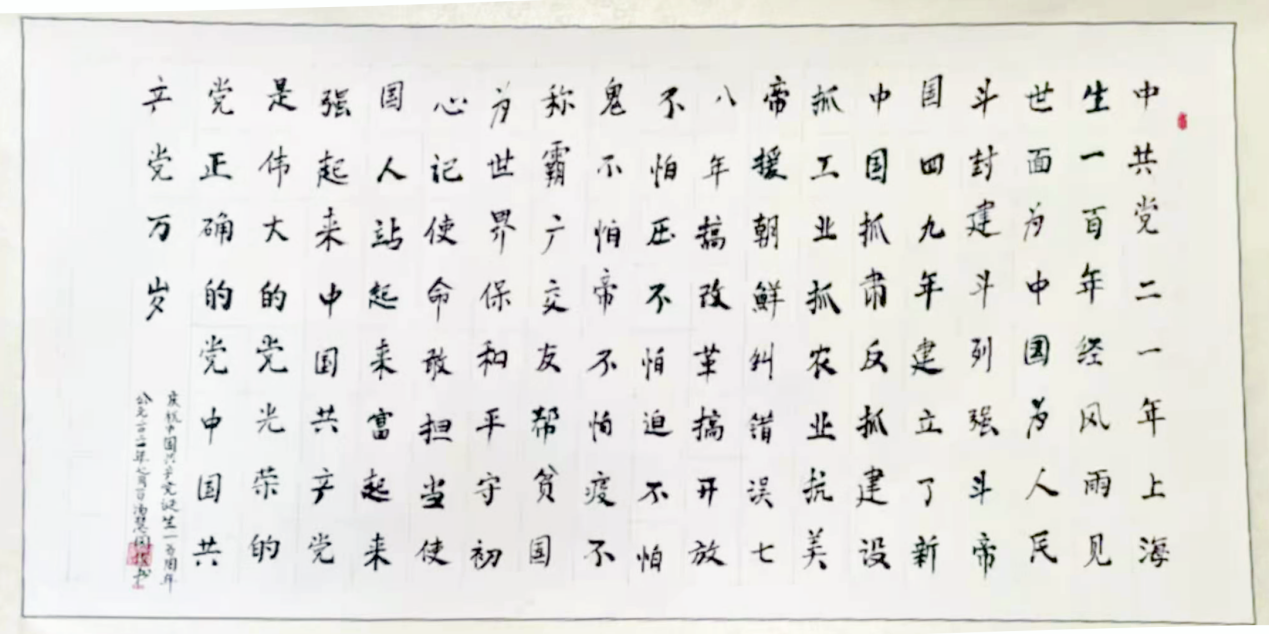 中共党二一年上海
生一百年经风雨见
世面为中国为人民
斗封建斗列强斗帝
国四九年建立了新
中国抓肃反抓建设
抓工业抓农业抗美
帝援朝鲜纠错误七
八年搞改革搞开放
不怕压不怕迫不怕
鬼不怕帝不怕疫不
称霸广交友帮贫国
为世界保和平守初
心记使命敢担当使
国人站起来富起来
强起来中国共产党
是伟大的党光荣的
党正确的党中国共
产党万岁
庆祝中国共产党诞生一百周年
公元二〇二一年七月一日